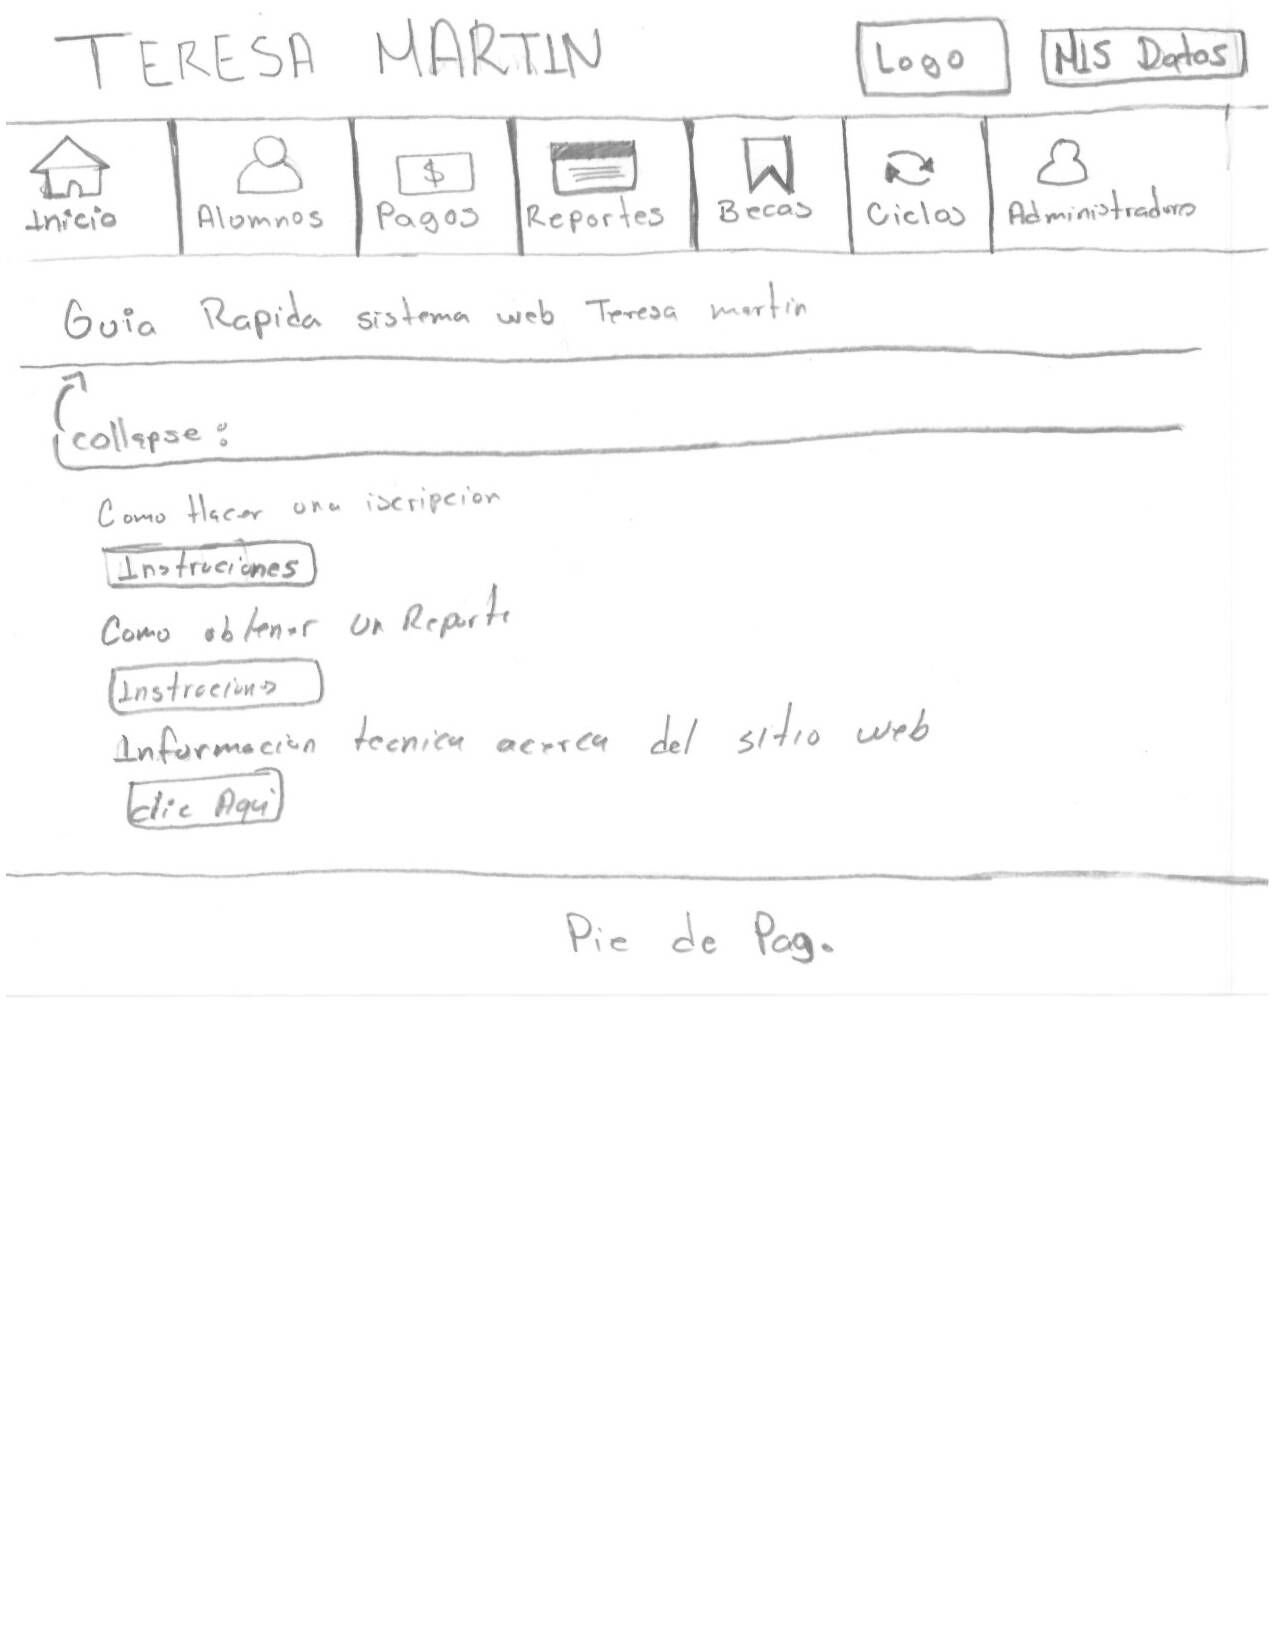 TERESA MARTIN
Logo
MIS Datos
Inicio
Alumnos
$
Pagos
Reportes
Becas
Ciclos
Administradores
Guia Rapida sistema web Teresa martin
collapse:
Como Hacer una iscripcion
Instruciones
Como obtener un Reporte
Instruciones
Informacion tecnica acerca del sitio web
clic Aqui
Pie de Pag.